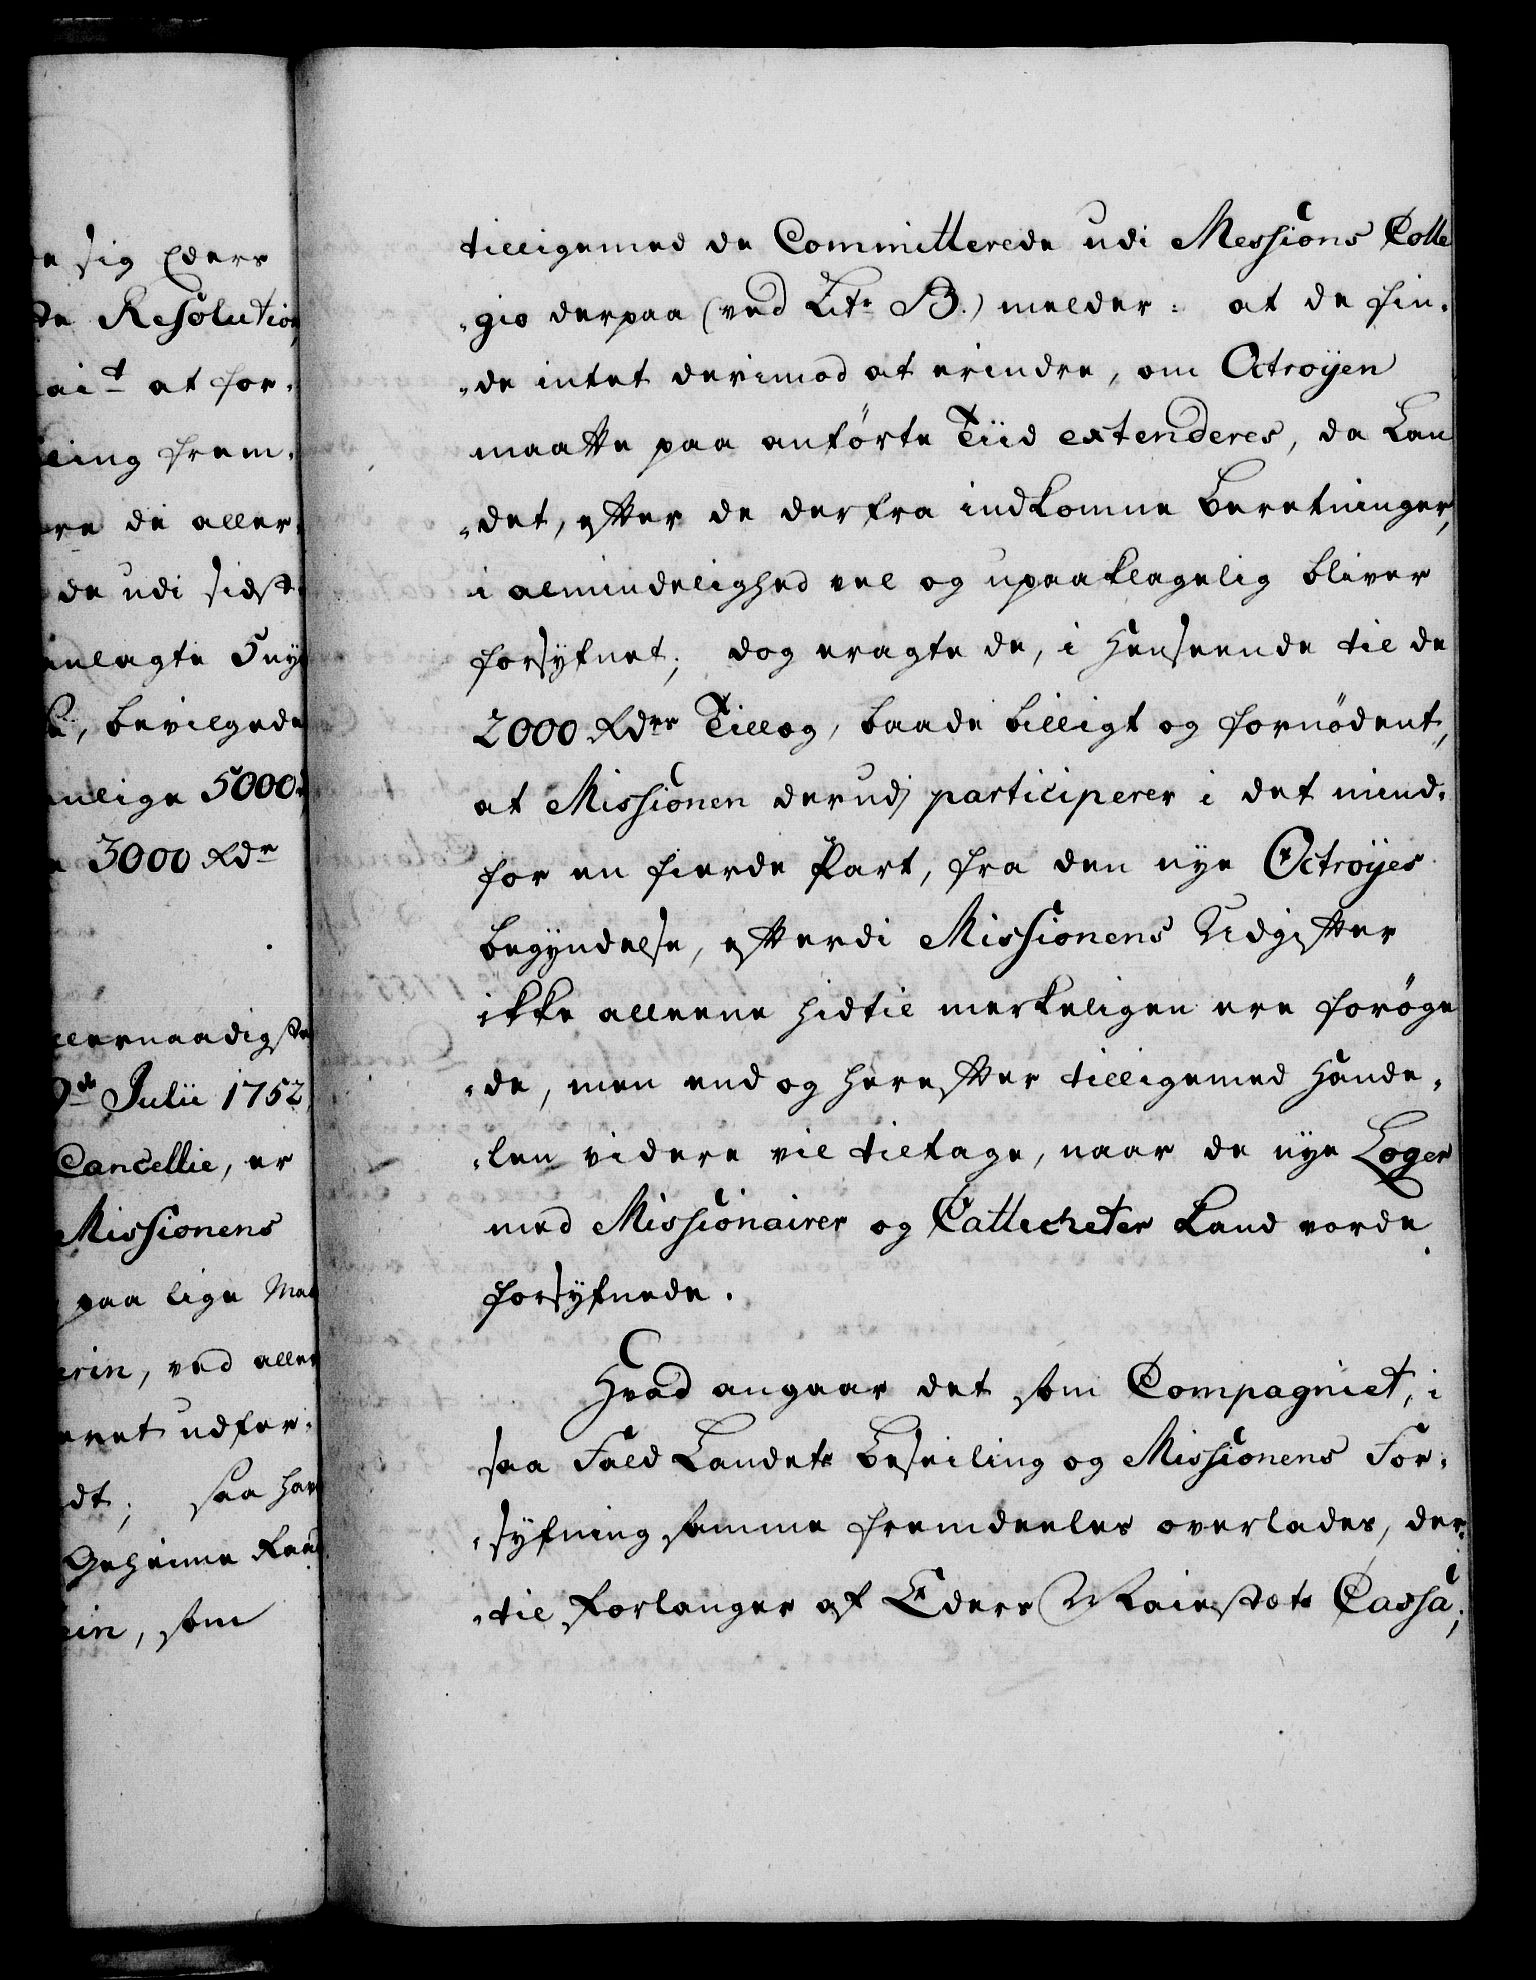 e sig Eders
de Resolution,
ai.t at for-
ling frem-
re de aller-
de udi sidst
anlagte 5 nye
bevilgede
anlige 5000
3000 Rdr
allernaadigste
9de Julii 1752
Cancellie, er
Missionens
paa lige Maa
erin, ved aller
eret udfær-
dt; saa har
Geheime Raad
ein, som
tilligemed de Committerede udi Messions Colle
-gio derpaa (ved Litr B.) melder: at de fin-
-de intet derimod at erindre, om Octroyen
maatte paa anførte Tiid extenderes, da Lan
-det, efter de derfra indkomne Beretninger,
i almindelighed vel og upaaklagelig bliver
forsÿnet; dog eragte de, i Henseende til de
2000 Rdrs Tillæg, baade billigt og fornødent,
at Missionen derudj participerer i det mind-
for en fierde Part, fra den nye Octroyes
begyndelse, efterdi Missionens Udgifter
ikke alleene hidtil merkeligen ere forøge
-de, men end og herefter tilligemed Hande-
-len videre vil tiltage, naar de nye Loger
med Missionairer og Cattecheter Land vorde
forsÿnede.
Hvad angaar det som Compagniet, i
saa Fald Landets Beseiling og Missionens For-
-sÿning samme fremdeeles overlades, der-
-til forlanger af Eders Maiestets Cassa;